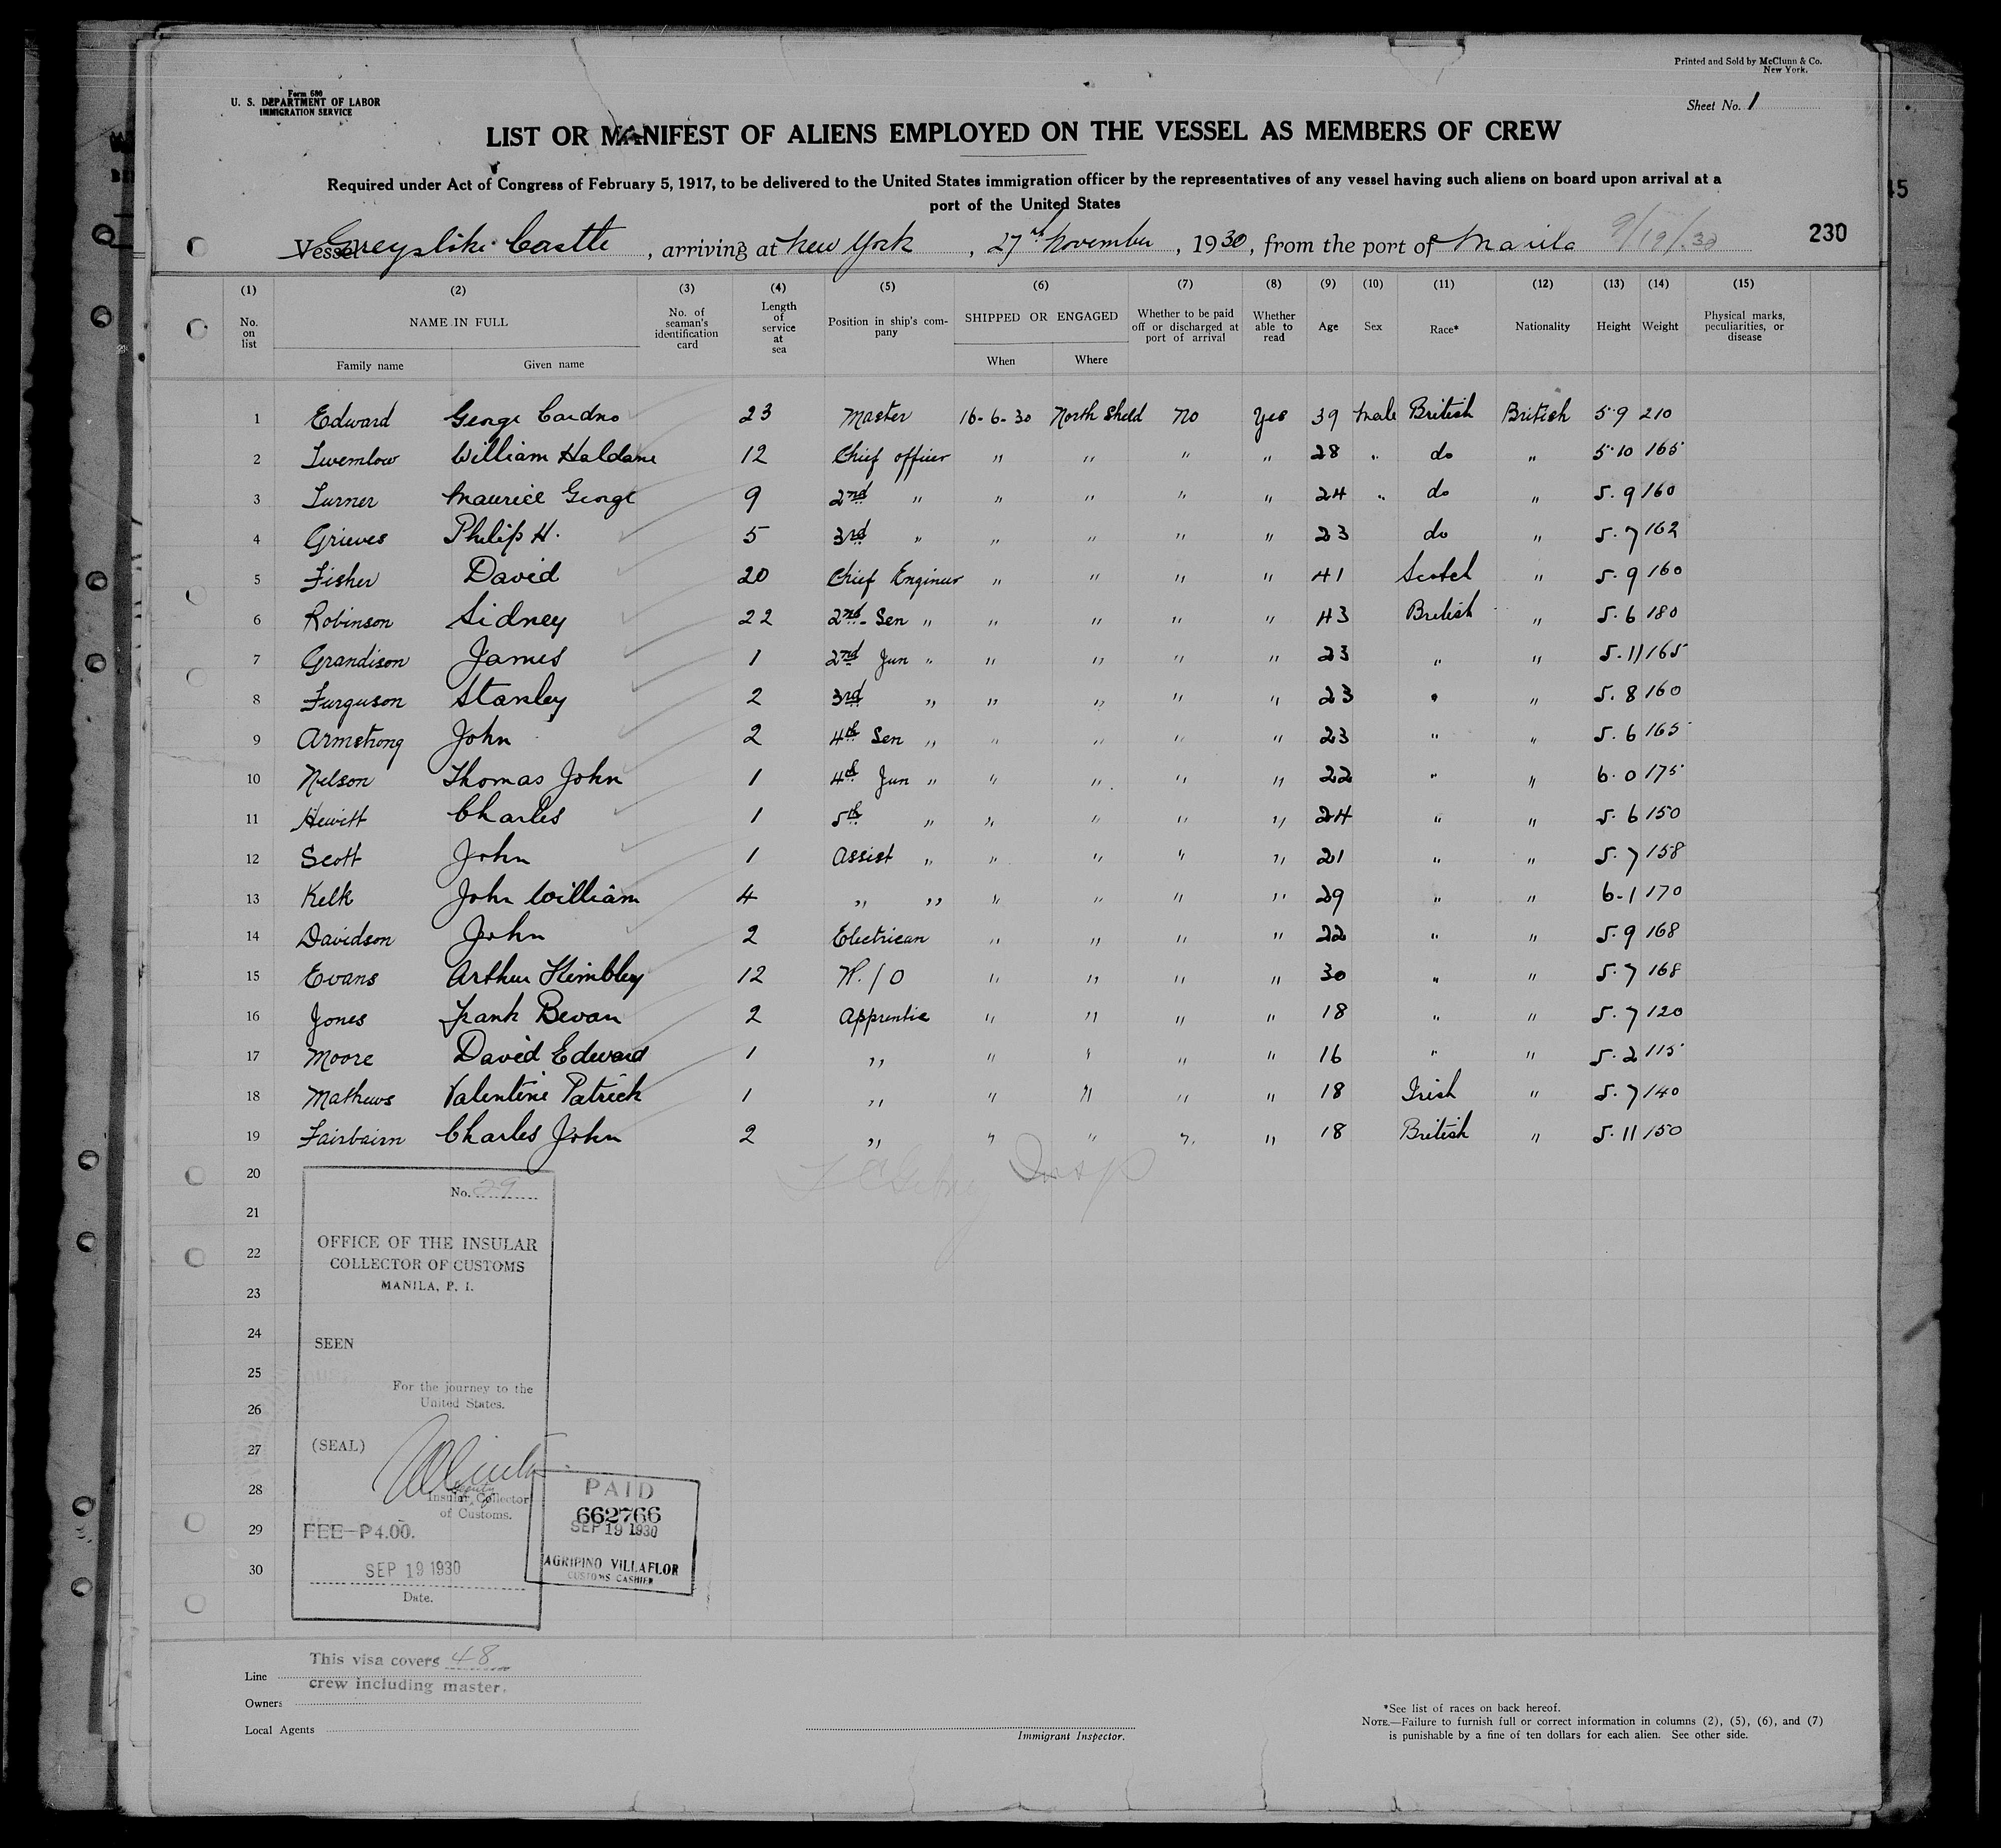 Printed and Sold by McClunn & Co.
New York.
Form 680
U. S. DEPARTMENT OF LABOR
IMMIGRATION SERVICE
Sheet No. 1
LIST OR MANIFEST OF ALIENS EMPLOYED ON THE VESSEL AS MEMBERS OF CREW
Required under Act of Congress of February 5, 1917, to be delivered to the United States immigration officer by the representatives of any vessel having such aliens on board upon arrival at a
port of the United States
Vessel Greystoke Castle, arriving at New York, 27th November, 1930, from the port of Manila 9/19/30 230
(1) (2) (3) (4) (5) (6) (7) (8) (9) (10) (11) (12) (13) (14) (15)
No. on list NAME IN FULL No. of seaman's identification card Length of service at sea Position in ship's company SHIPPED OR ENGAGED Whether to be paid off or discharged at port of arrival Whether able to read Age Sex Race* Nationality Height Weight Physical marks, peculiarities, or disease
Family name Given name When Where
1 Edward George Cardno 23 Master 16-6-30 North Sheld No Yes 39 Male British British 5.9 210
2 Twemlow William Haldane 12 Chief officer " " " " 28 " do " 5.10 165
3 Turner Maurice George 9 2nd " " " " " 24 " do " 5.9 160
4 Grieves Philip H. 5 3rd " " " " " 23 do " 5.7 162
5 Fisher David 20 Chief Engineer " " " " 41 Scotch " 5.9 160
6 Robinson Sidney 22 2nd - Sen " " " " " 43 British " 5.6 180
7 Grandison James 1 2nd Jun " " " " " 23 " " 5.11 165
8 Furguson Stanley 2 3rd " " " " " 23 " " 5.8 160
9 Armstrong John 2 4th Sen " " " " " 23 " " 5.6 165
10 Nelson Thomas John 1 4th Jun " " " " " 22 " " 6.0 175
11 Hewitt Charles 1 5th " " " " " 24 " " 5.6 150
12 Scott John 1 Assist " " " " " 21 " " 5.7 158
13 Kelk John William 4 " " " " " " 29 " " 6-1 170
14 Davidson John 2 Electrican " " " " 22 " " 5.9 168
15 Evans Arthur Kimbley 12 W./O " " " " 30 " " 5.7 168
16 Jones Frank Bevan 2 Apprentic " " " " 18 " " 5.7 120
17 Moore David Edward 1 " " " " " 16 " " 5.2 115
18 Mathews Valentine Patrick 1 " " " " " 18 Irish " 5.7 140
19 Fairbairn Charles John 2 " " " " " 18 British " 5.11 150
20
No. 29
21
OFFICE OF THE INSULAR
22
COLLECTOR OF CUSTOMS
MANILA, P. I.
23
24
SEEN
25
For the journey to the
United States.
26
27
(SEAL)
28
Deputy
Insular Collector
of Customs.
29
FEE—P4.00.
30
SEP 19 1930
Date.
PAID
662766
SEP 19 1930
AGRIPINO VILLAFLOR
CUSTOMS CASHIER
This visa covers 48
crew including master.
Line
Owners
Local Agents
Immigrant Inspector.
*See list of races on back hereof.
NOTE.—Failure to furnish full or correct information in columns (2), (5), (6), and (7)
is punishable by a fine of ten dollars for each alien. See other side.
45